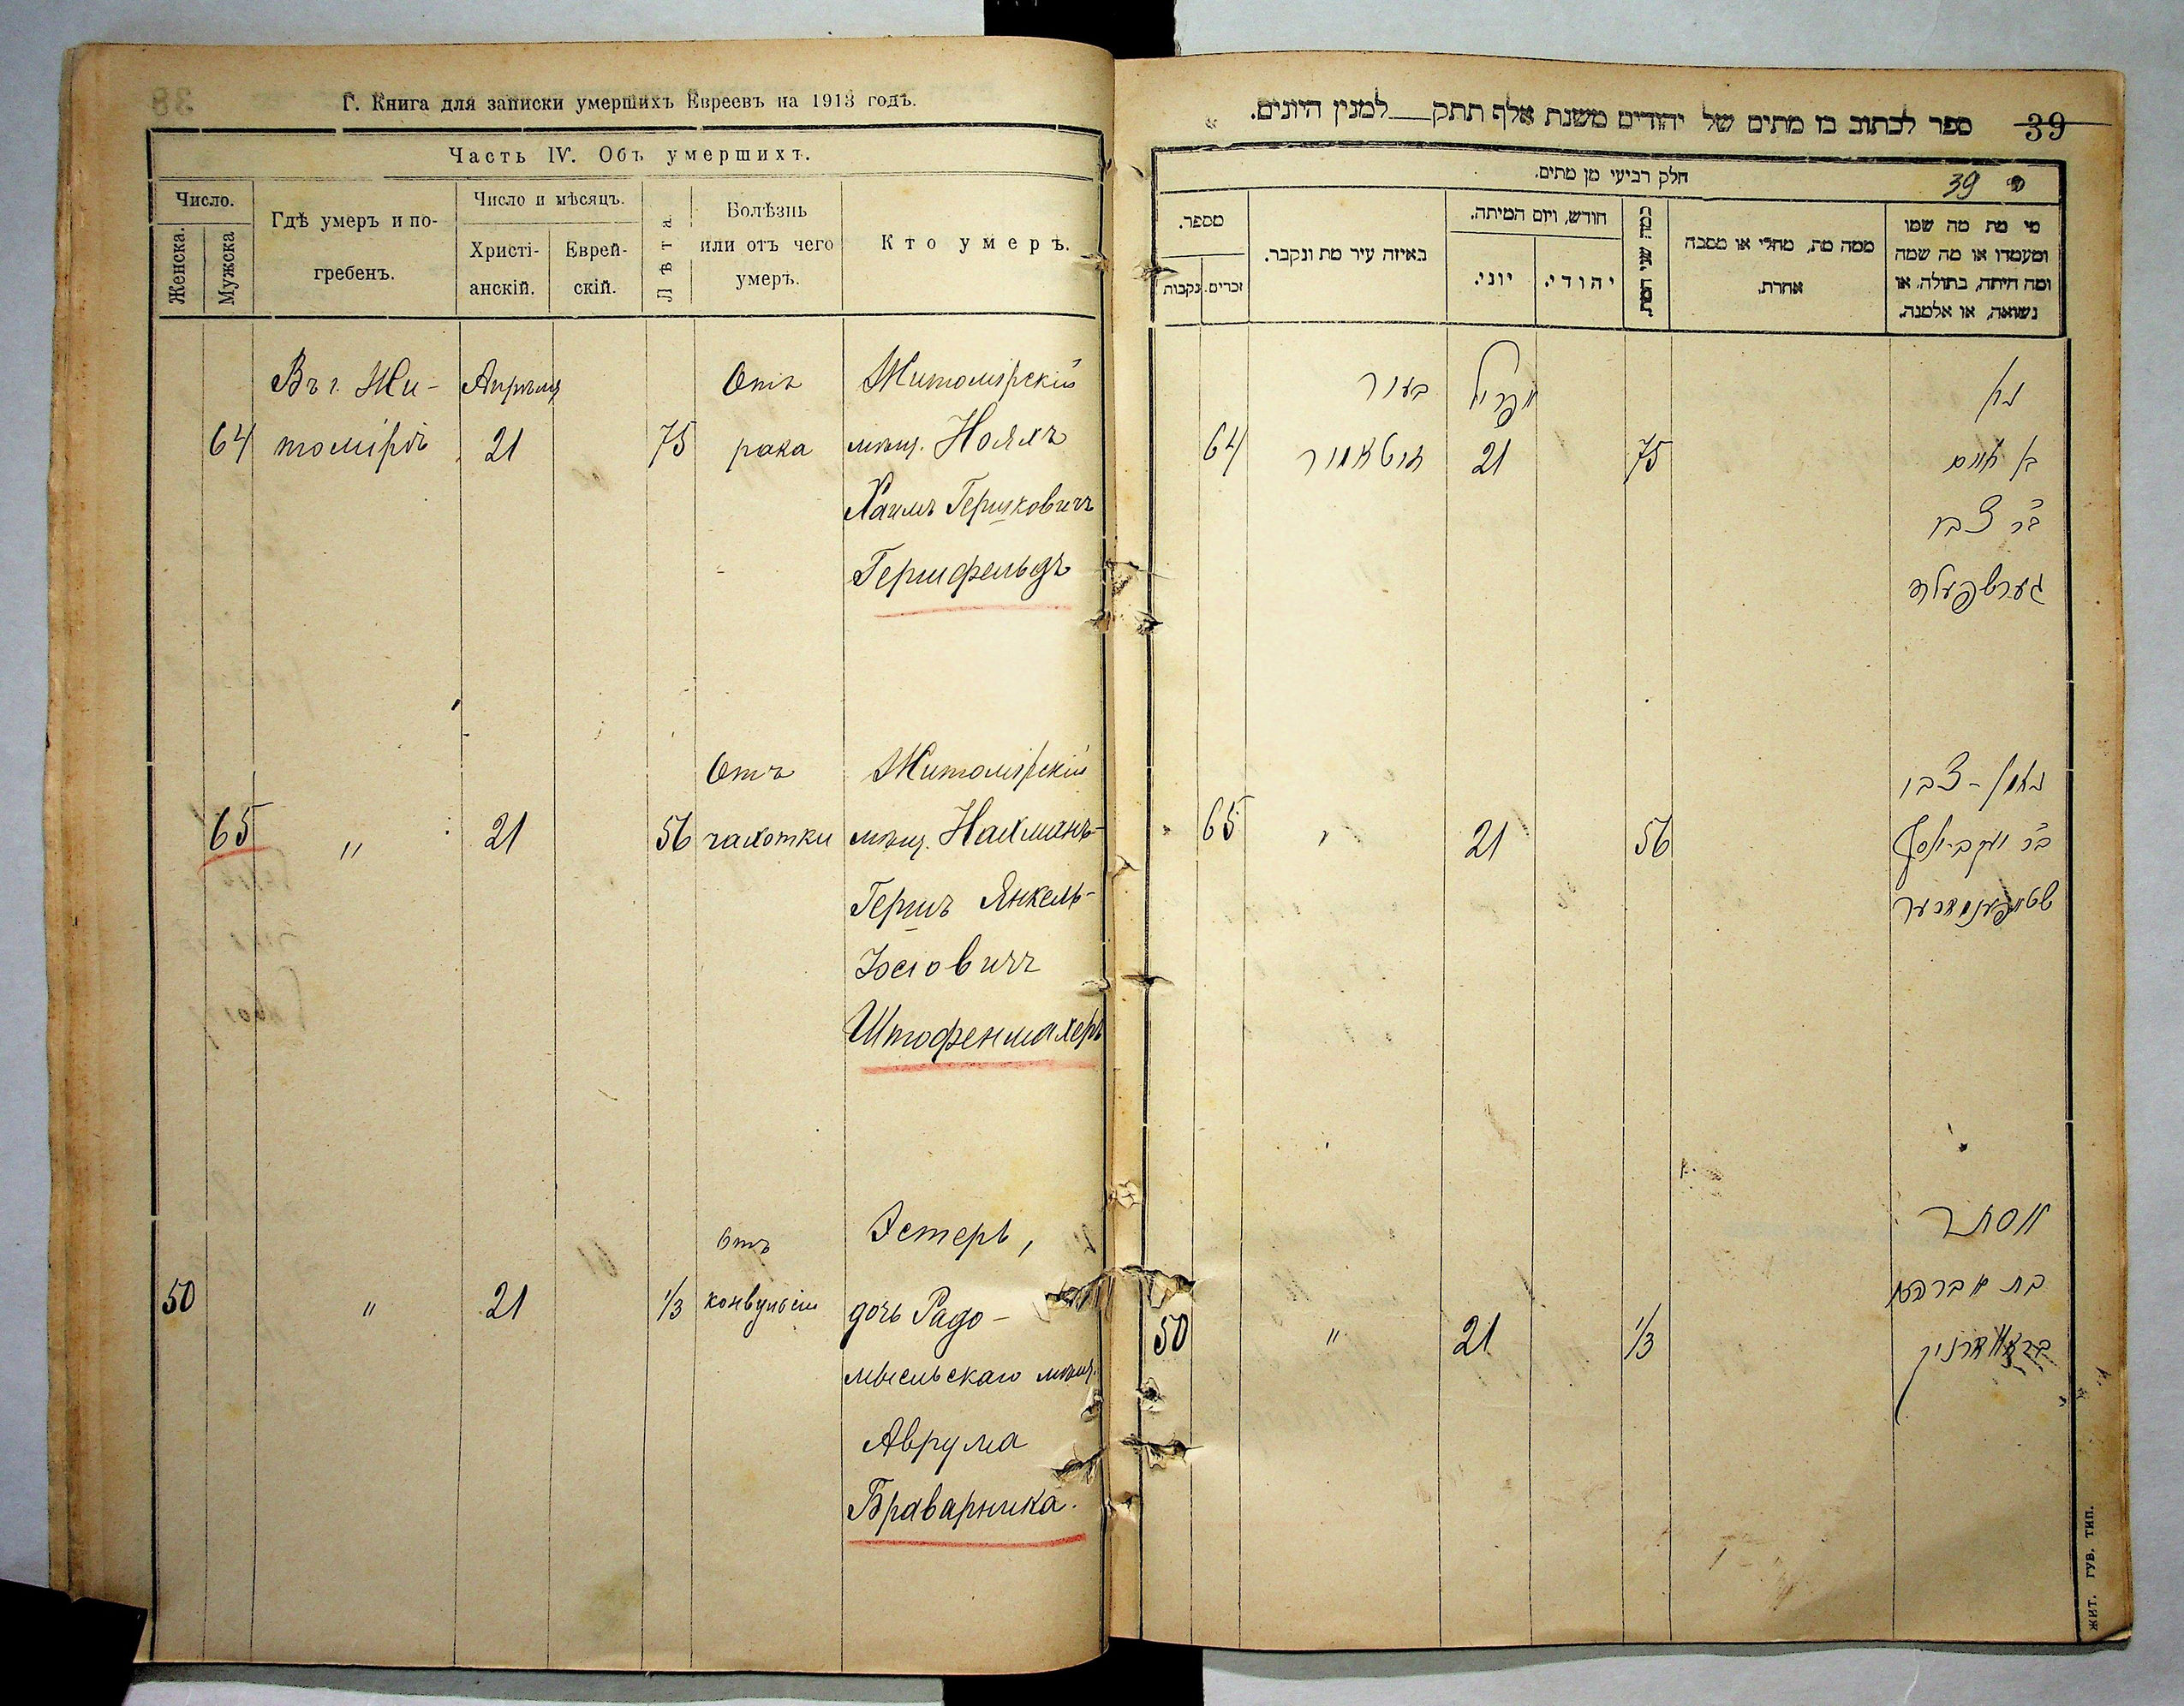 Г. Книга для записки умершихъ Евреевъ на 1913 годъ.
Часть IV. Объ умершихъ.
Число.
Женска.
Мужска
Гдѣ умеръ и по-
гребенъ.
Число и мѣсяцъ.
Христі-
анскій.
Еврей-
скій.
Лѣта.
Болѣзнь
или отъ чего
умеръ.
Кто умеръ.
Въ г. Жи- Апрѣля Отъ Житомірскій
64 томірѣ 21 75 рака мѣщ. Нояхъ
Хаимъ Гершковичъ
Гершфельдъ
Отъ Житомірскій
65 " 21 56 чахотки мѣщ. Нахманъ-
Гершъ Янкель-
Іосіовичъ
Штофенмахеръ
Отъ Эстеръ,
50 " 21 1/3 конвульсіи дочь Радо-
мысльскаго мѣщ.
Аврума
Браварника.
39 ספר לכתוב בו מתים של יהודים משנת אלף תתק למנין היונים.
חלק רביעי מן מתים.
39
מי מת מה שמו
ומעמדו או מה שמה
ומה היתה, בתולה, או
נשואה, או אלמנה.
ממה מת, מחלי או מסבה
אחרת.
כמה שני המת.
חודש, ויום המיתה.
יהודי.
יוני.
באיזה עיר מת ונקבר.
מספר.
זכרים.
נקבות
נח
אפריל
בעיר
חיים 75 21 זיטאמיר 64
ב"ר צבי
גערשפעלד
נחמן-צבי
ב"ר יעקב-יוסף 56 21 " 65
שטאפענמאכער
אסתר
בת אברהם
בראווארניק 1/3 21 " 50
ЖИТ. ГУБ. ТИП.